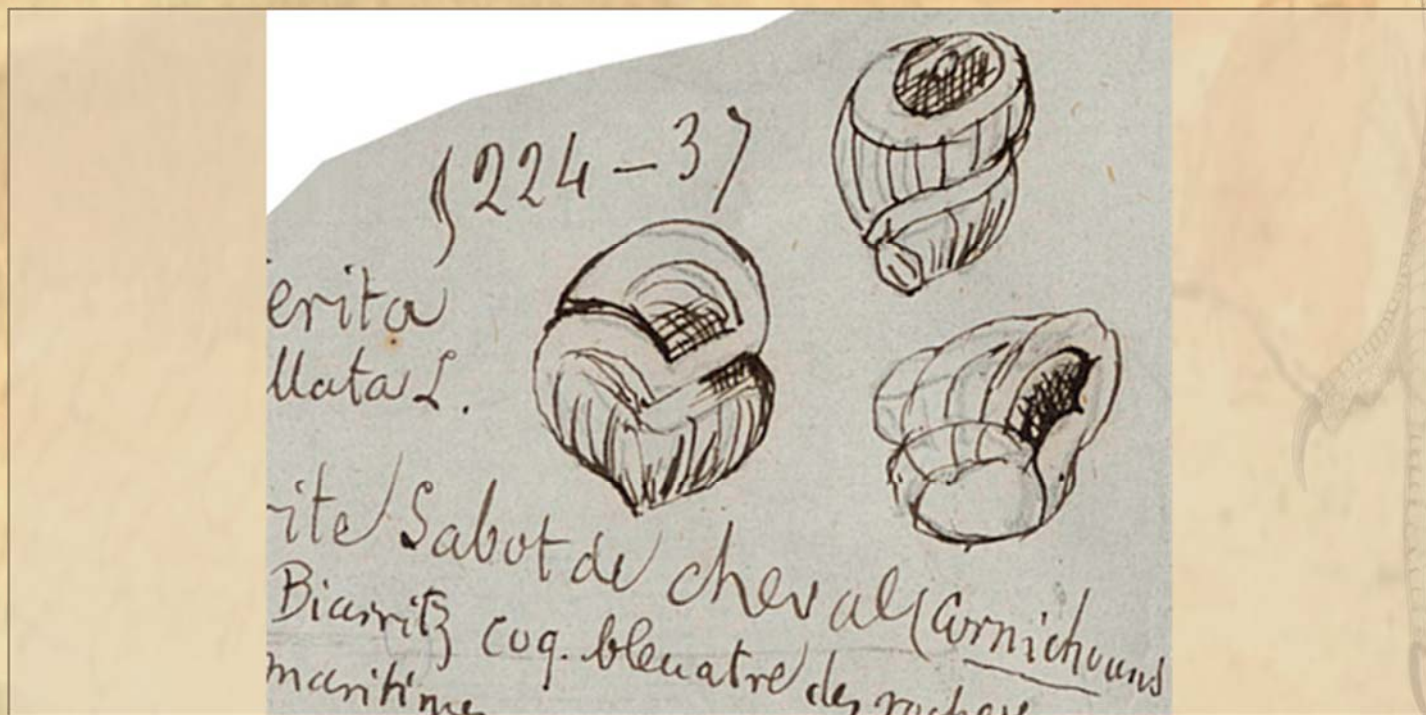 §224-37
erita
llata L.
ite Sabot de cheval (Cornichouns
Biarritz coq. bleuatre des rochers
maritime